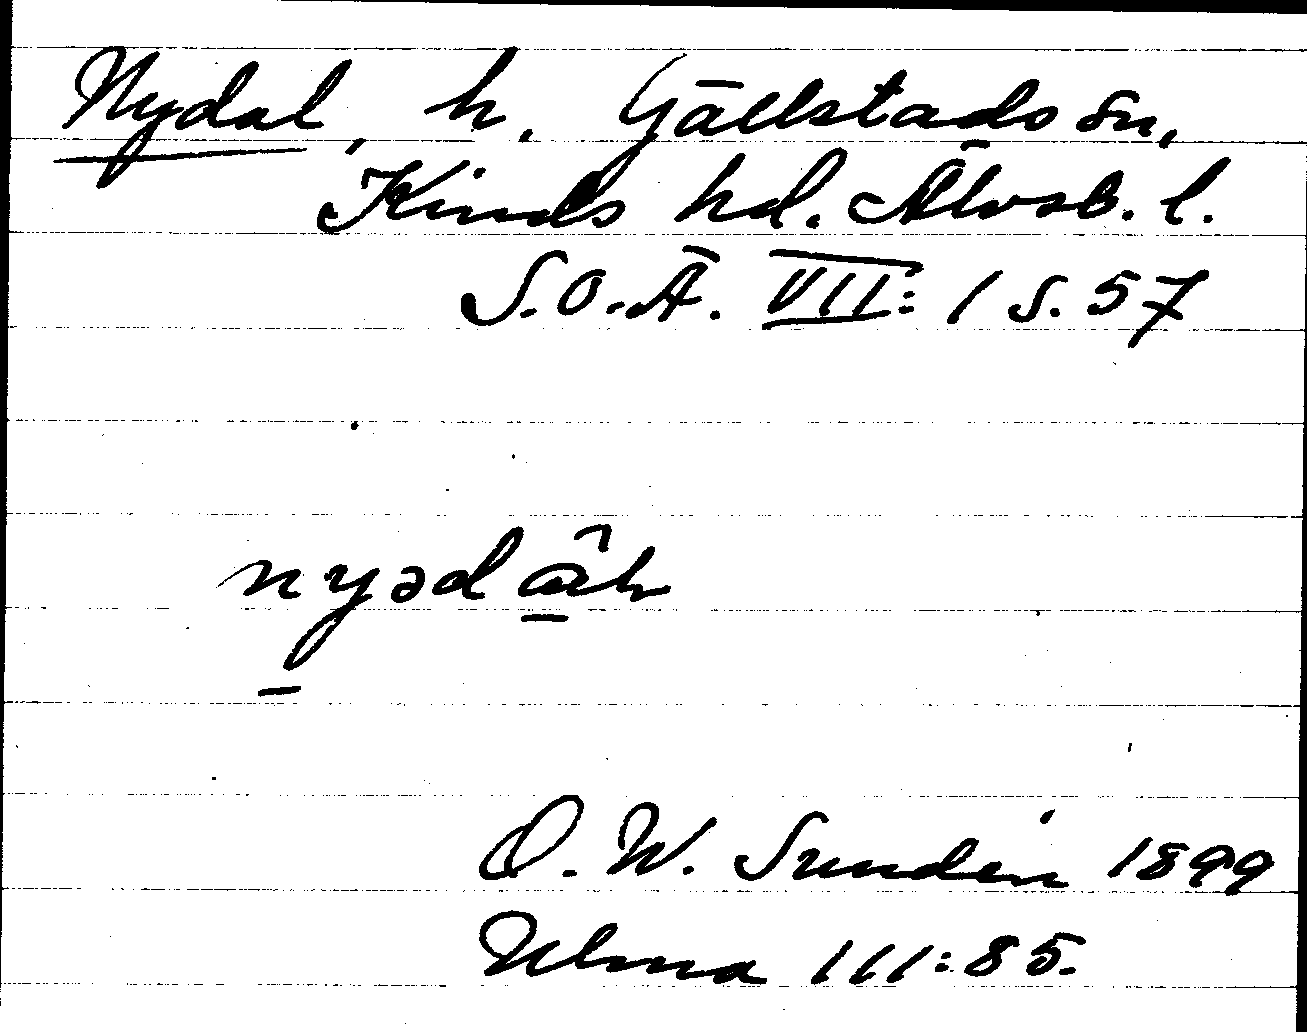 Nydal, h. Gällstads sn,
Kinds hd. Älvsb. l.
S.O.Ä. VII: 1 s. 57
O. W. Sundén 1899
Ulma 111:85.